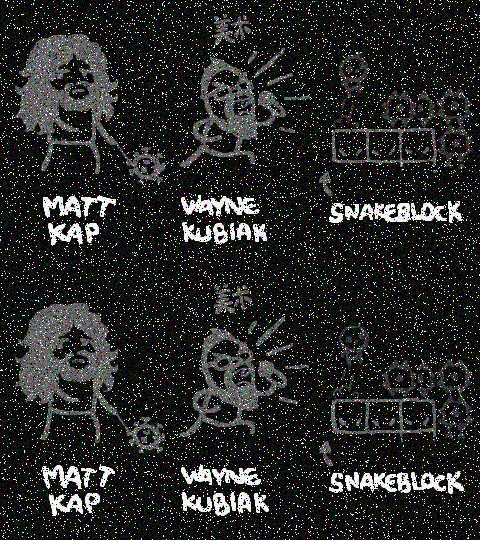 美术
MATT
KAP
WAYNE
KUBIAK
SNAKEBLOCK
美术
MATT
KAP
WAYNE
KUBIAK
SNAKEBLOCK